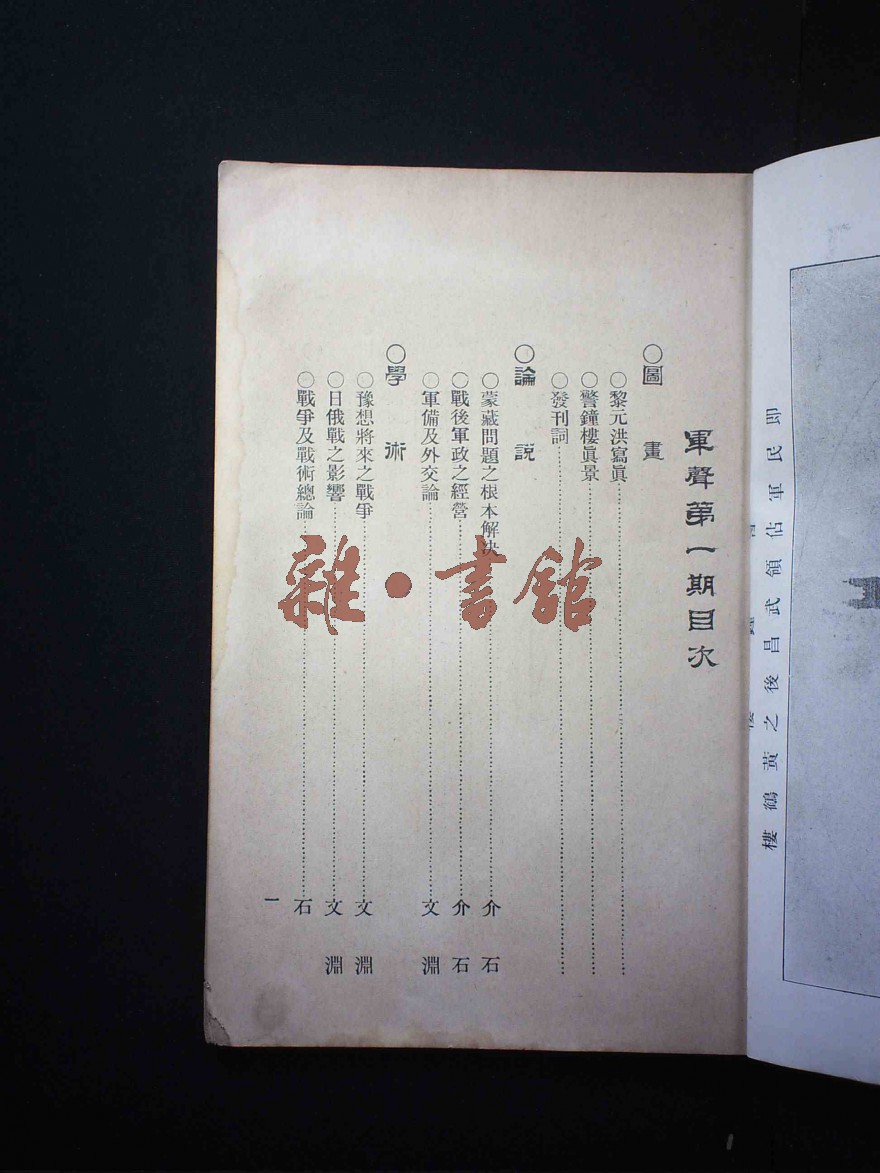 即民軍佔領武昌後之黃鶴樓
軍聲第一期目次
○圖畫
○黎元洪寫眞
○警鐘樓眞景
○發刊詞
○論說
○蒙藏問題之根本解决 介石
○戰後軍政之經營 介石
○軍備及外交論 文淵
○學術
○豫想將來之戰爭 文淵
○日俄戰之影響 文淵
○戰爭及戰術總論 石
一
雜·書館